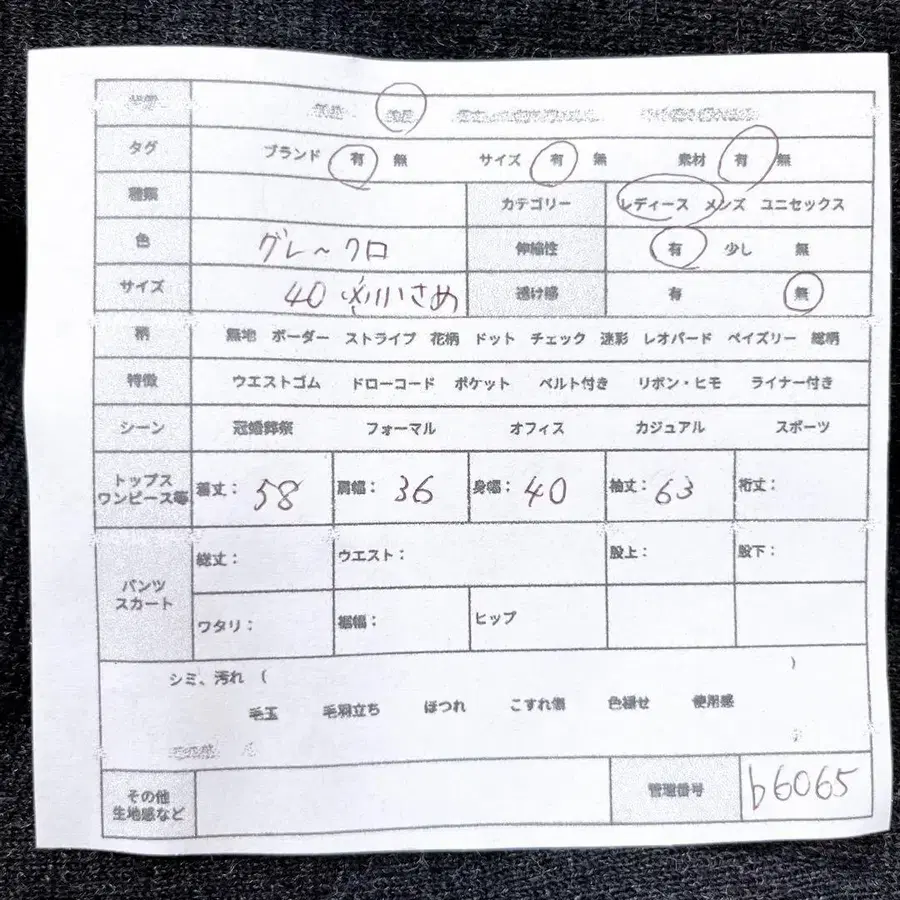 タグ ブランド 有 無 サイズ 有 無 素材 有 無
種類 カテゴリー レディース メンズ ユニセックス
色 グレ～クロ 伸縮性 有 少し 無
サイズ 40 小さめ 透け感 有 無
柄 無地 ボーダー ストライプ 花柄 ドット チェック 迷彩 レオパード ペイズリー 総柄
特徴 ウエストゴム ドローコード ポケット ベルト付き リボン・ヒモ ライナー付き
シーン 冠婚葬祭 フォーマル オフィス カジュアル スポーツ
トップス
ワンピース等 着丈: 58 肩幅: 36 身幅: 40 袖丈: 63 裄丈:
パンツ
スカート
総丈: ウエスト: 股上: 股下:
ワタリ: 裾幅: ヒップ
シミ、汚れ ( )
毛玉 毛羽立ち ほつれ こすれ傷 色褪せ 使用感
その他
生地感など 管理番号 b6065